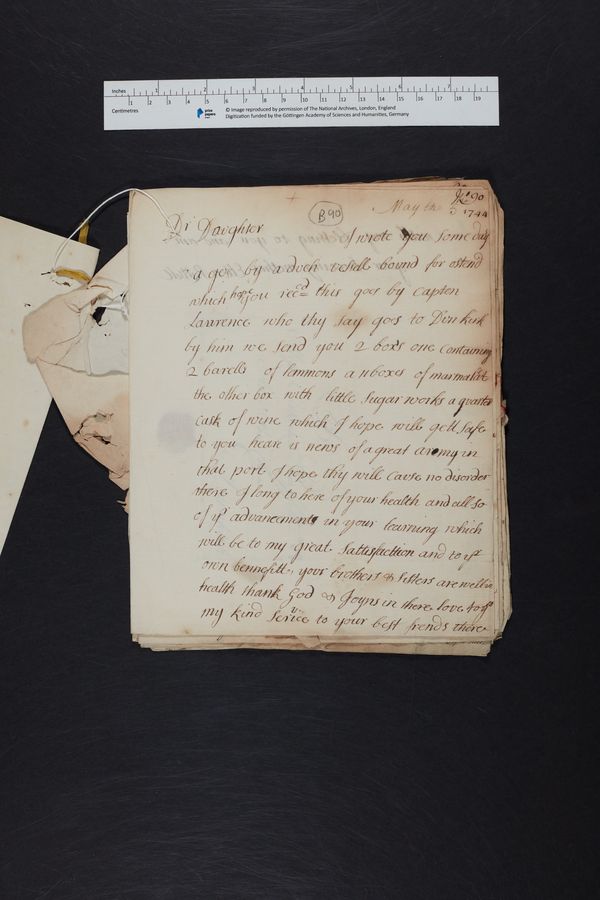 Inches 1 2 3 4 5 6 7
1 2 3 4 5 6 7 8 9 10 11 12 13 14 15 16 17 18 19
Centimetres
prize papers
© Image reproduced by permission of The National Archives, London, England
Digitization funded by the Göttingen Academy of Sciences and Humanities, Germany
B90
90
May the 5 1744
Dr Daughter
I wrote you some day
a goe by a duch vesell bound for ostend
which hope you reced this goes by Capten
Lawrence who thy say goes to Dunkirk
by him we send you 2 boxs one Containing
2 barells of lemmons a nboxes of marmalet
the other box with little sugar works a quarter
Cask of wine which I hope will gett safe
to you heare is news of a great army in
that port I hope thy will cause no disorder
there I long to here of your health and all so
of yr advancement in your learning which
will be to my great sattisfaction and to yr
own bennefitt, your brothers & sisters are well in
health thank God & Joyns in there love to yu
my kind service to your best frends there